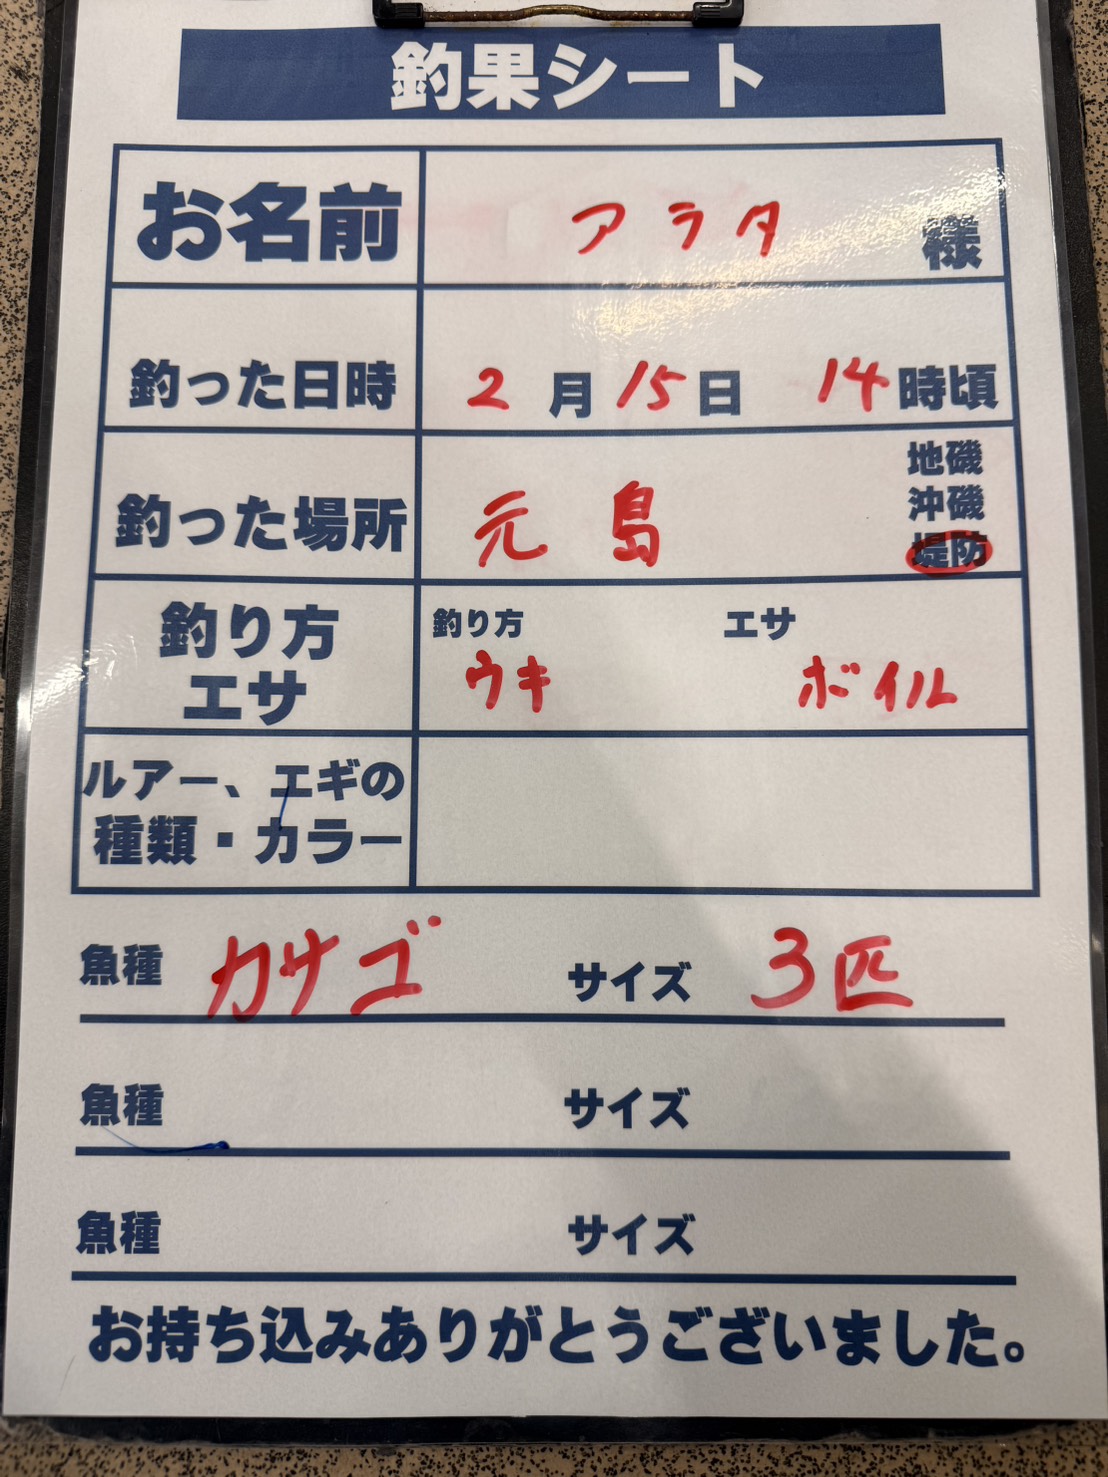 釣果シート
お名前 アラタ 様
釣った日時 2月15日 14時頃
釣った場所 元島 地磯
沖磯
堤防
釣り方
エサ
釣り方 エサ
ウキ ボイル
ルアー、エギの
種類・カラー
魚種 カサゴ サイズ 3匹
魚種 サイズ
魚種 サイズ
お持ち込みありがとうございました。